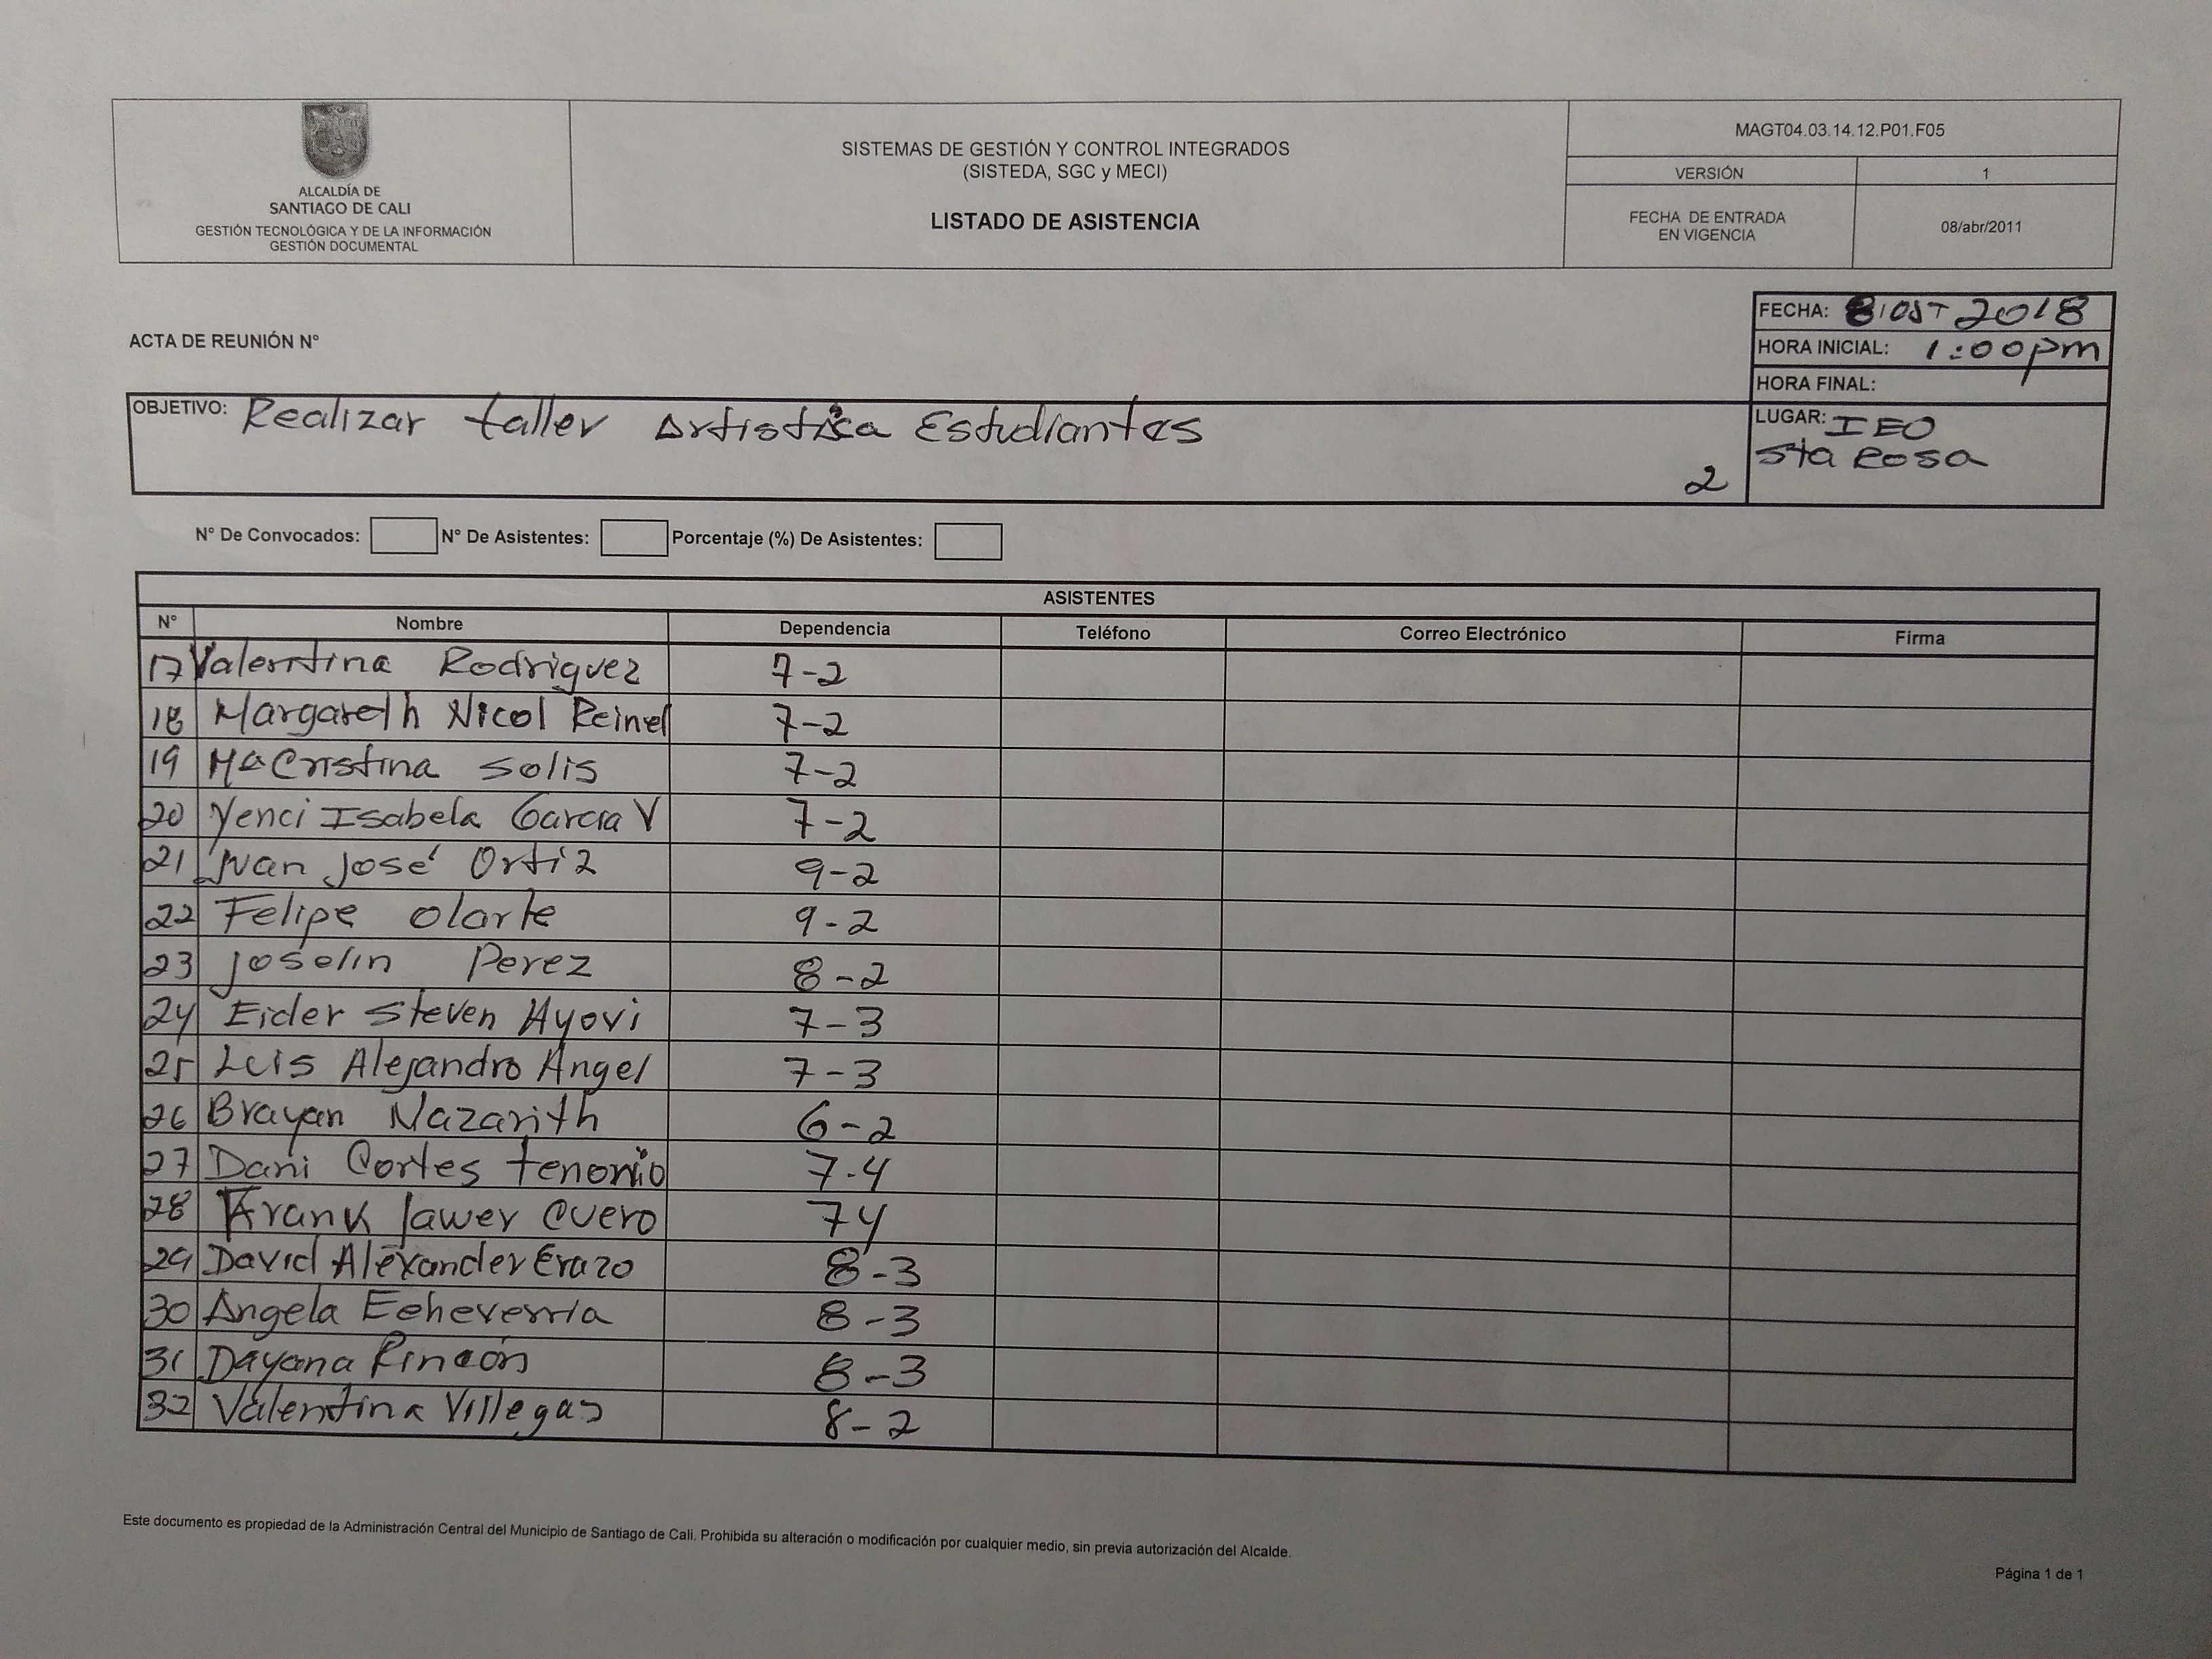 ALCALDÍA DE
SANTIAGO DE CALI
GESTIÓN TECNOLÓGICA Y DE LA INFORMACIÓN
GESTIÓN DOCUMENTAL
SISTEMAS DE GESTIÓN Y CONTROL INTEGRADOS
(SISTEDA, SGC y MECI)
LISTADO DE ASISTENCIA
MAGT04.03.14.12.P01.F05
VERSIÓN 1
FECHA DE ENTRADA
EN VIGENCIA
08/abr/2011
ACTA DE REUNIÓN N°
FECHA: 8 2018
HORA INICIAL: 1:00pm
HORA FINAL:
OBJETIVO: Realizar taller Artistica Estudiantes
2
LUGAR: IEO
Sta Rosa
N° De Convocados: N° De Asistentes: Porcentaje (%) De Asistentes:
ASISTENTES
N° Nombre Dependencia Teléfono Correo Electrónico Firma
17 Valentina Rodriguez 7-2
18 Margareth Nicol Reinel 7-2
19 Ma Cristina Solis 7-2
20 Yenci Isabela Garcia V 7-2
21 Juan José Ortiz 9-2
22 Felipe Olarte 9-2
23 Joselin Perez 8-2
24 Eider Steven Ayovi 7-3
25 Luis Alejandro Angel 7-3
26 Brayan Nazarith 6-2
27 Dani Cortes tenorio 7-4
28 Frank Jawer Cuero 74
29 David Alexander Erazo 8-3
30 Angela Echeverria 8-3
31 Dayana Rincón 8-3
32 Valentina Villegas 8-2
Este documento es propiedad de la Administración Central del Municipio de Santiago de Cali. Prohibida su alteración o modificación por cualquier medio, sin previa autorización del Alcalde.
Página 1 de 1